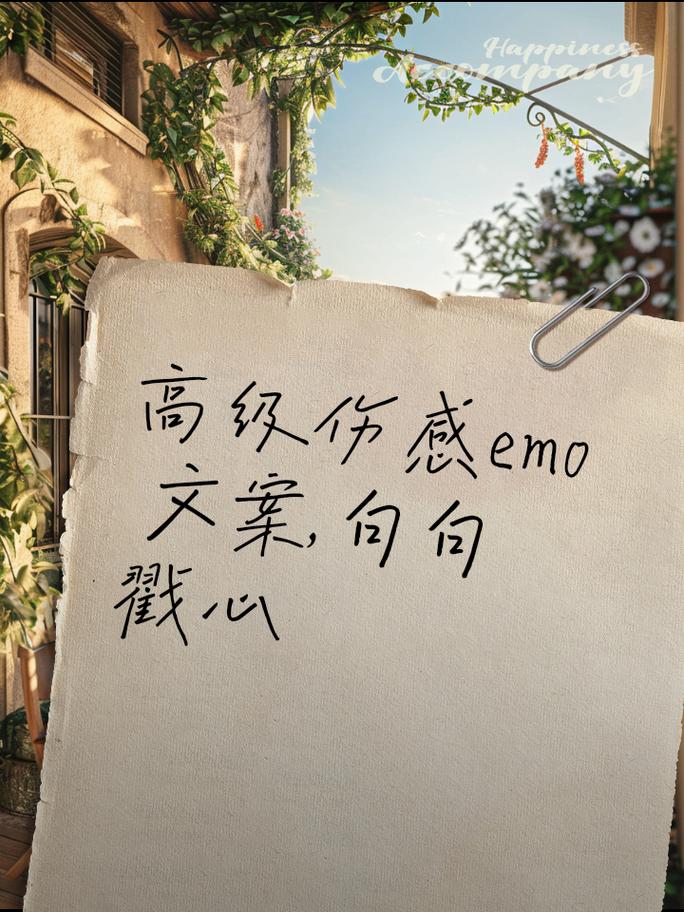 Happiness
Accompany
高级伤感emo
文案,句句
戳心